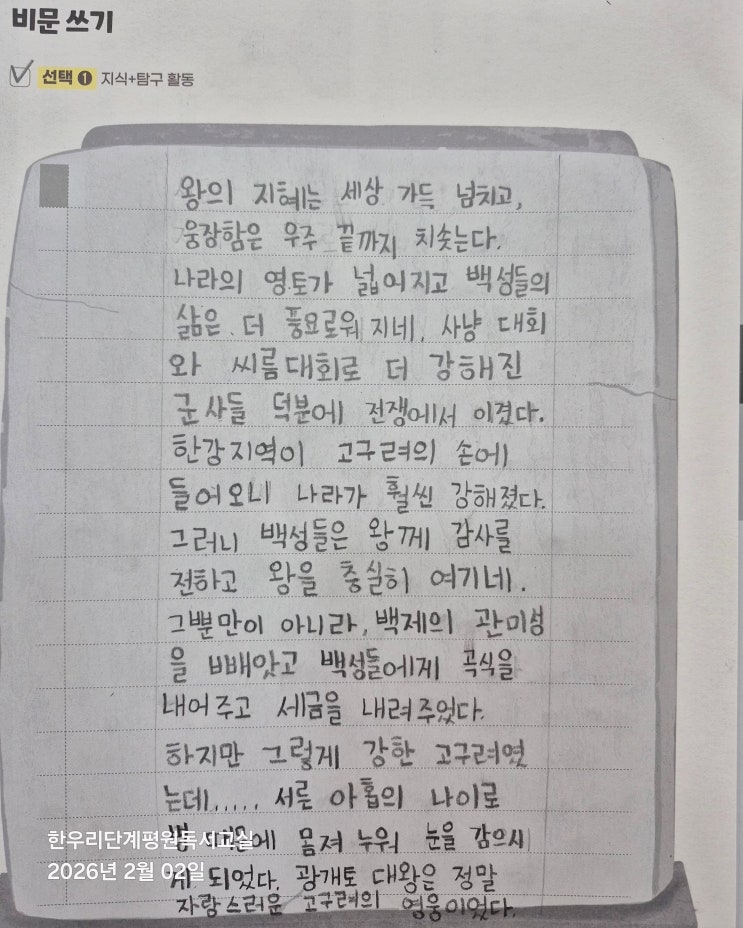 비문 쓰기
선택 ❶ 지식+탐구 활동
왕의 지혜는 세상 가득 넘치고,
웅장함은 우주 끝까지 치솟는다.
나라의 영토가 넓어지고 백성들의
삶은 더 풍요로워 지네. 사냥 대회
와 씨름대회로 더 강해진
군사들 덕분에 전쟁에서 이겼다.
한강지역이 고구려의 손에
들어오니 나라가 훨씬 강해졌다.
그러니 백성들은 왕께 감사를
전하고 왕을 충실히 여기네.
그뿐만이 아니라, 백제의 관미성
을 빼앗고 백성들에게 곡식을
내어주고 세금을 내려주었다.
하지만 그렇게 강한 고구려였
는데..... 서른 아홉의 나이로
병 때문에 몸져 누워 눈을 감으시
게 되었다. 광개토 대왕은 정말
자랑스러운 고구려의 영웅이었다.
한우리단계평원독서교실
2026년 2월 02일